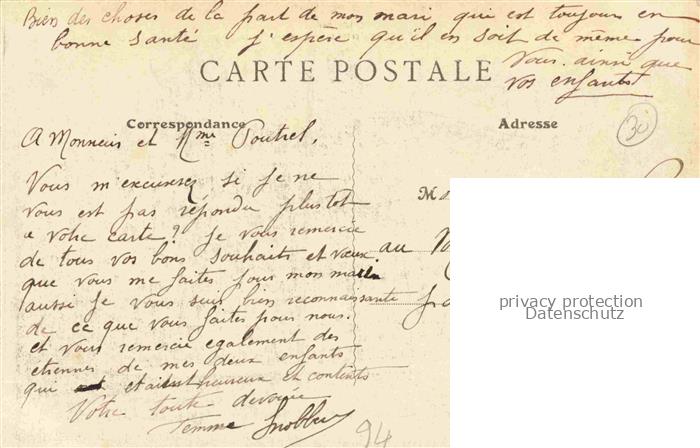 Bien des choses de la part de mon mari qui est toujours en
bonne santé j'espère qu'il en soit de même pour
Vous. ainsi que
vos enfants
CARTE POSTALE
Correspondance
Adresse
30
A Monsieur et Mme Poutrel.
Vous m'excuserez si je ne
vous est pas répondu plustot
a votre carte? je vous remercie
de tous vos bons souhaits et vœux.
que vous me faites pour mon mari
aussi je vous suis bien reconnaissante
de ce que vous faites pour nous.
et vous remercie egalement des
étiennes de mes deux enfants
qui etaient heureux et contents
Votre toute devouée
Femme
94
M
au
privacy protection
Datenschutz